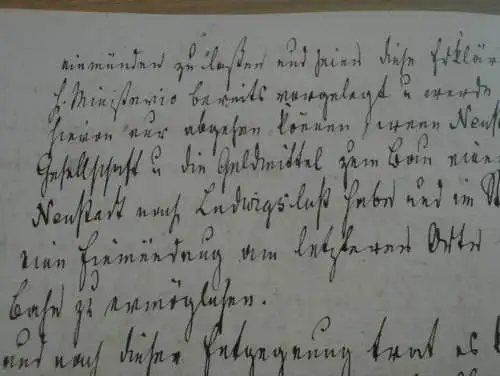 einmünden zu laßen und seien diese Erklär
h. Ministerio bereits vorgelegt u werde
hievon nur abgehen können, wenn Neust
Gesellschaft u die Geldmittel zum Bau einer
Neustadt nach Ludwigslust habe und im St
eine Einmündung am letzteren Orte
Bahn zu ermöglichen.
und nach dieser Entgegnung trat es